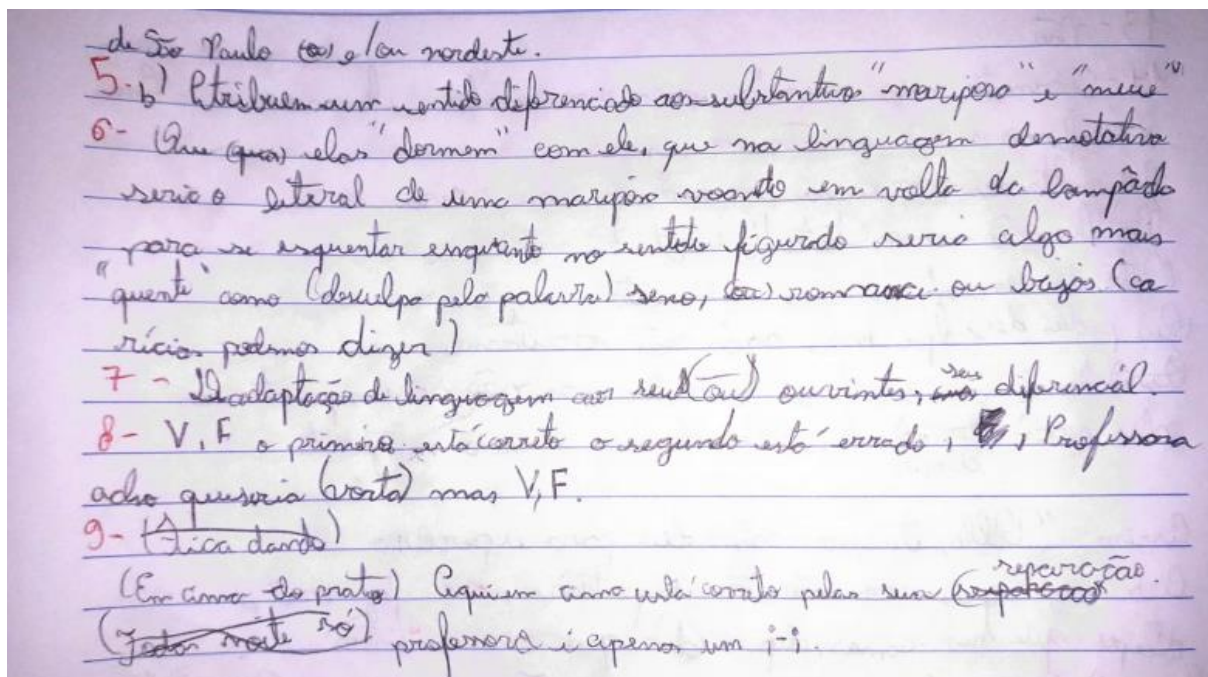 de São Paulo (ou) e/ou nordeste.
5- b) Atribuem um sentido diferenciado aos substantivos "mariposa" e "meue"
6- Que (que) elas "dormem" com ele, que na linguagem demotativa
seria o literal de uma mariposa voando em volta da lampâda
para se esquentar enquanto no sentido figurado seria algo mais
"quente" como (desculpe pela palavra) sexo, (ou) romance ou beijos (ca
rícias podemos dizer)
7 - A adaptação de linguagem aos seus (ou) ouvintes, seu diferencial.
8- V, F o primeiro está correto o segundo está errado, , Professora
acho que seria (vorta) mas V, F.
9- (Fica dando)
(Em cima do prato) Aqui em cima está correto pelas sua reparação.
(Todas noite só) professora é apenas um i-i.